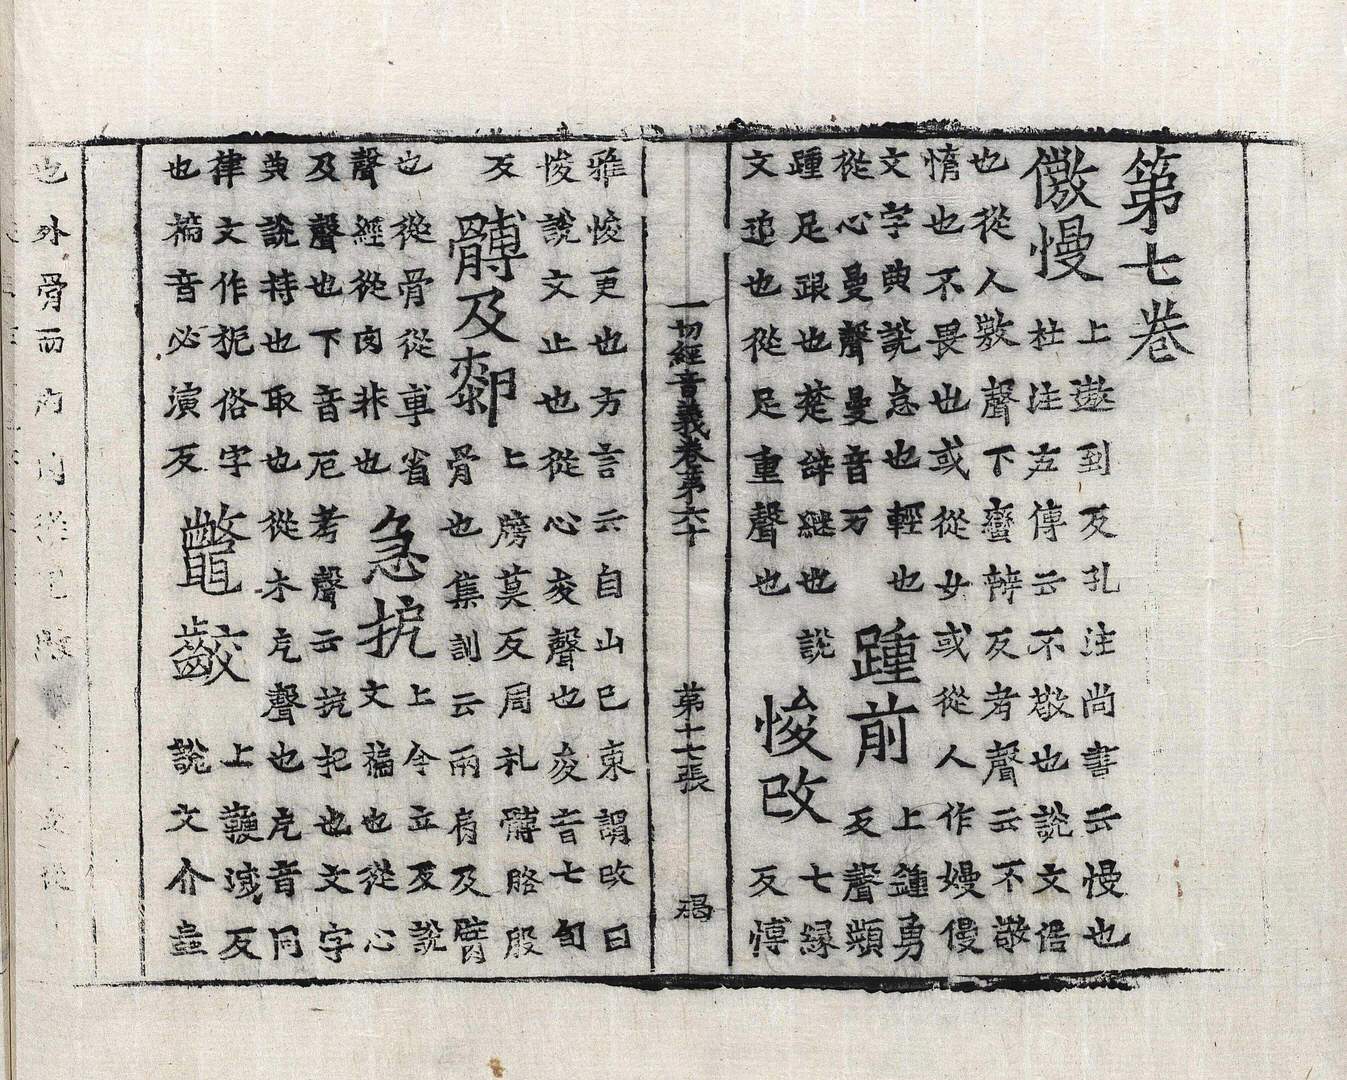 第七卷
傲慢
上遨到反孔注尚書云慢也
杜注左傳云不敬也說文倨
也從人敖聲下蠻辦反考聲云不敬
惰也不畏也或從女或從人作嫚僈
文字典說怠也輕也
從心曼聲曼音万
踵前
上鍾勇
反聲類
踵足跟也楚辭継也說
文追也從足重聲也
悛改
七緣
反愽
一切經音義卷第六十 第十七張
雅悛更也方言云自山已東謂改曰
悛說文止也從心夋聲也夋音七旬
反
髆及
上牓莫反周礼髆胳股
骨也集訓云兩肩及臂
也從骨從専省
聲經從肉非也
急扼
上今立反說
文褊也從心
及聲也下音厄考聲云扼把也文字
典說持也取也從木戹聲也戹音同
律文作枙俗字
也褊音必演反
鼈齩
上鞭滅反
說文介虫
也外骨而內肉從